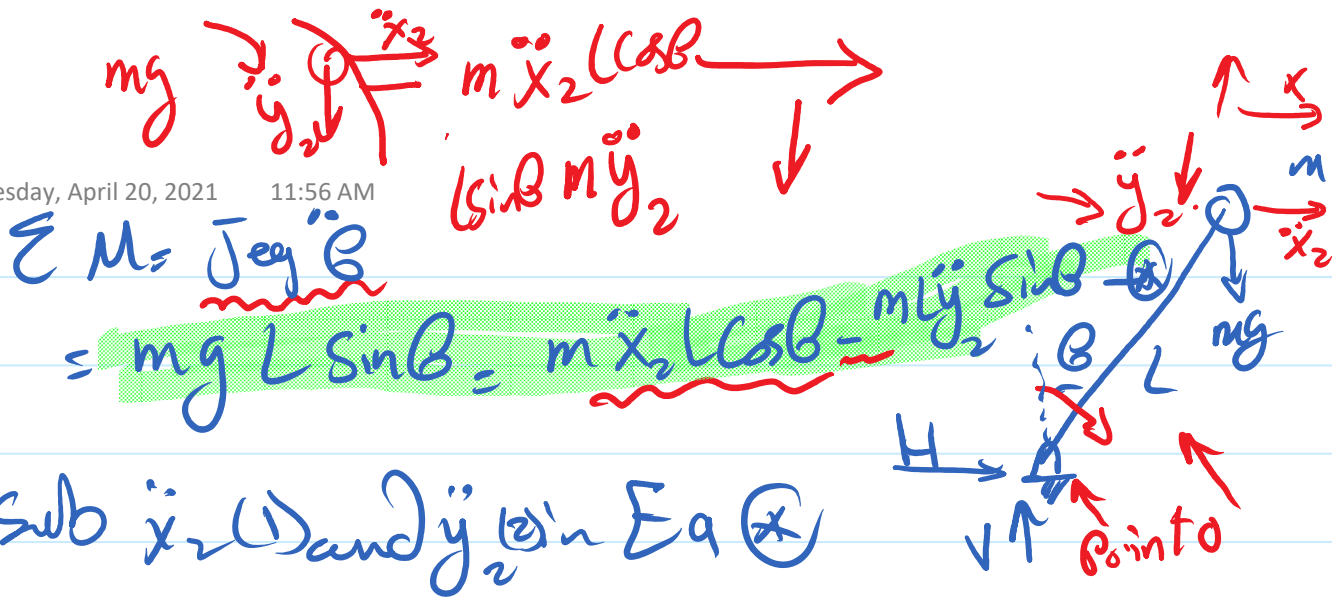 mg ÿ₂ ẍ₂ m ẍ₂ L Cosθ
L Sinθ m ÿ₂
esday, April 20, 2021 11:56 AM
Σ M = Jeq θ̈
= mg L Sinθ = m ẍ₂ L Cosθ - m L ÿ₂ Sinθ - ⊛
Sub ẍ₂ (1) and ÿ₂ (2) in Eq ⊛
x
ÿ₂
m
ẍ₂
mg
θ
L
H
V
Point O